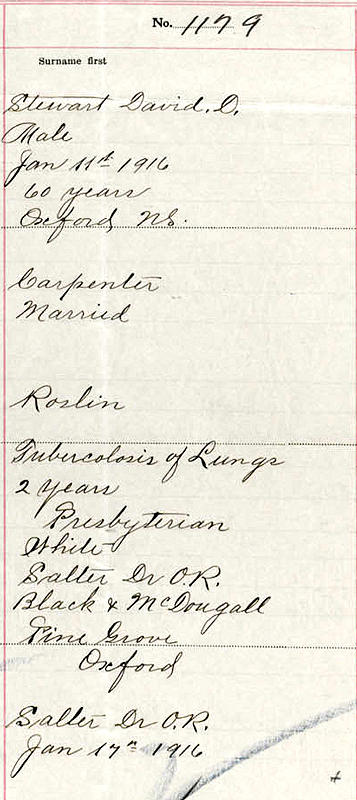 No. 1179
Surname first
Stewart David. D.
Male
Jan 11th 1916
60 years
Oxford NS.
Carpenter
Married
Roslin
Tubercolosis of Lungs
2 years
Presbyterian
White
Salter Dr O.R.
Black & McDougall
Pine Grove
Oxford
Salter Dr O.R.
Jan 17th 1916